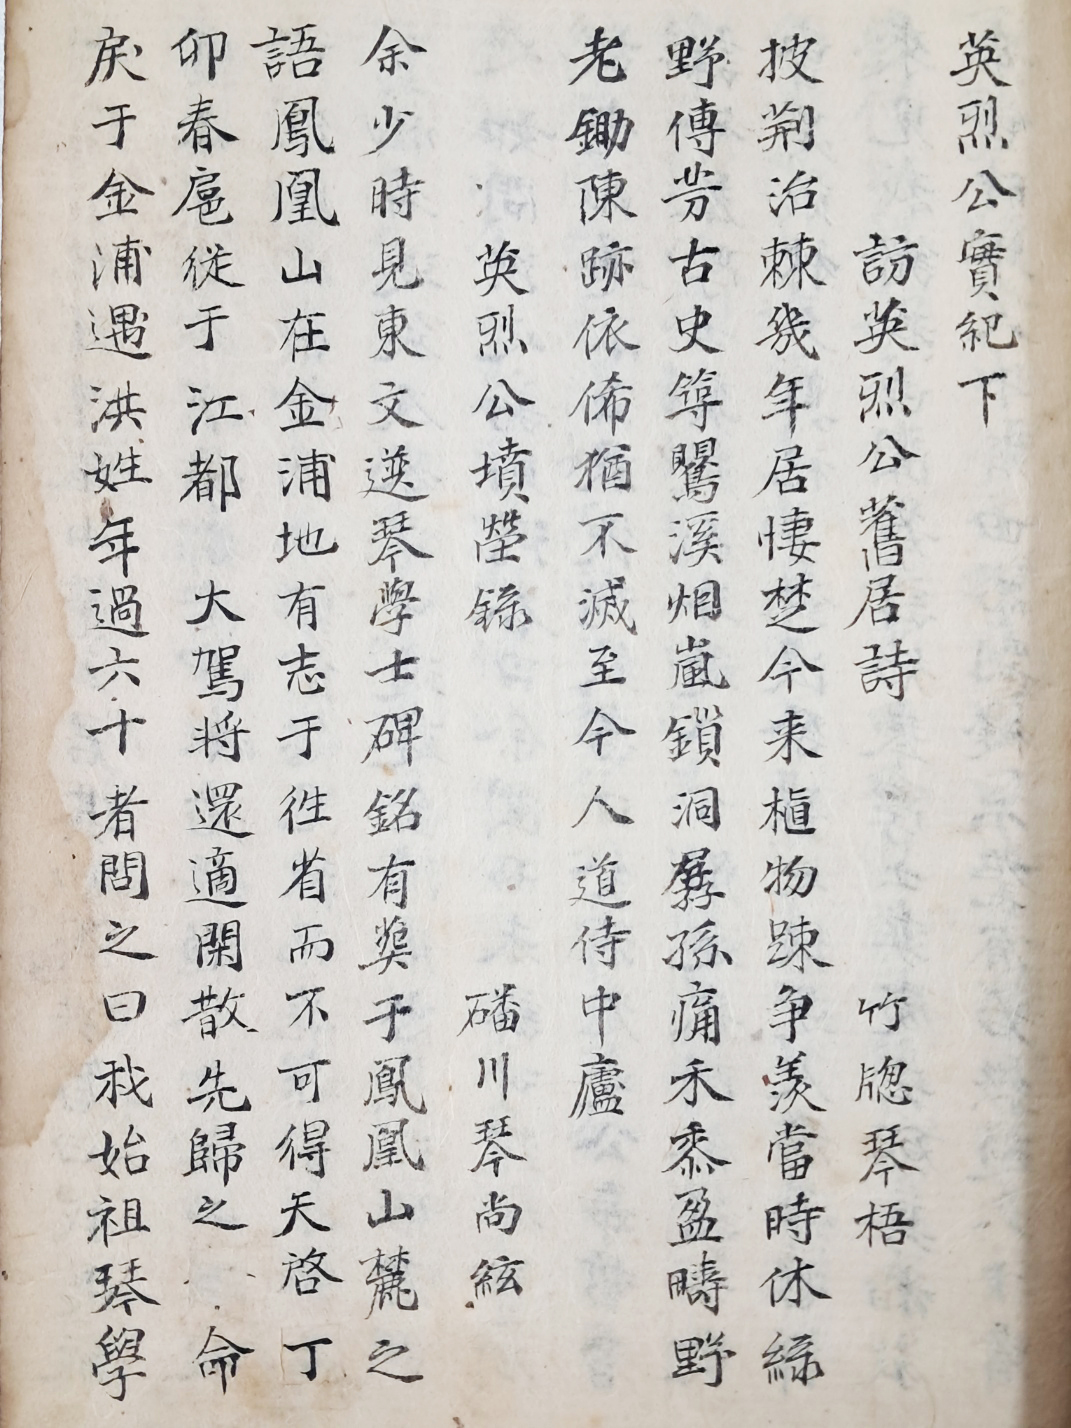 英烈公實紀下
訪英烈公舊居詩 竹牕琴梧
披荆治棘幾年居悽楚今来植物踈争羨當時休絲
野傳芳古史筭鸎溪烟嵐鎖洞孱孫痛禾黍盈疇野
老鋤陳跡依俙猶不滅至今人道侍中廬
英烈公墳塋錄 磻川琴尚絃
余少時見東文選琴學士碑銘有葬于鳳凰山麓之
語鳳凰山在金浦地有志于徃省而不可得天啓丁
卯春扈從于江都 大駕將還適閑散先歸之 命
戾于金浦遇洪姓年過六十者問之曰我始祖琴學